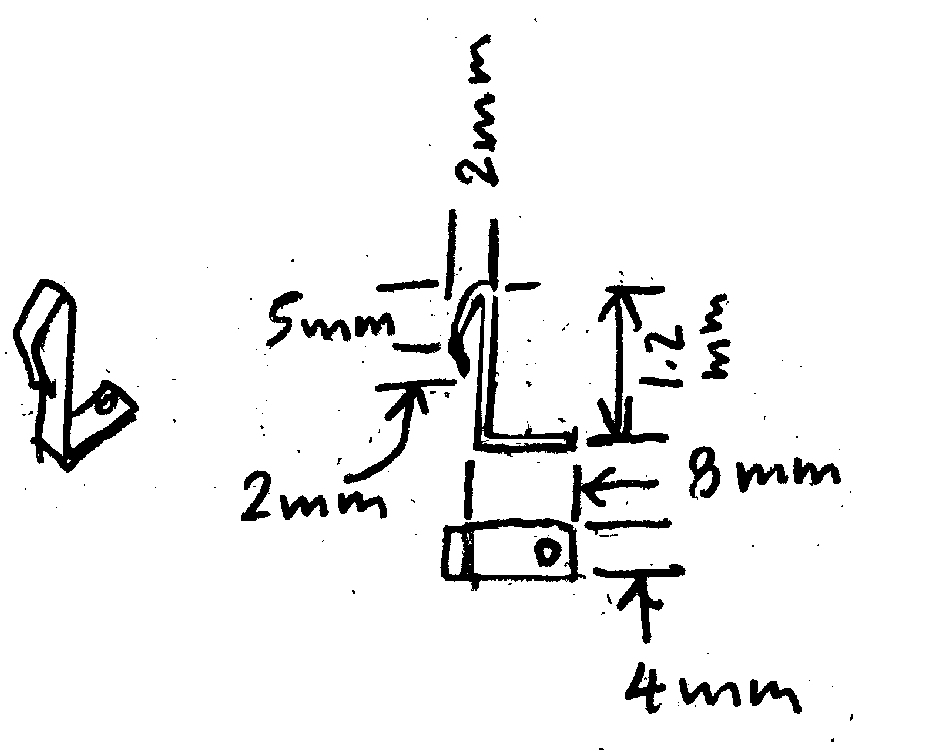 2mm
5mm
1.2
mm
2mm
8mm
4mm